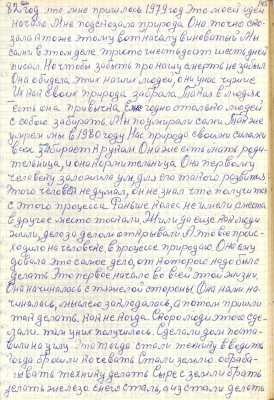 145
82 год это мне пришлось 1979 год это моей идеи
начало. Мне подсказала природа. Она точно ска-
зала. А тоже этому вот началу виноваты. Мы
сами в этом деле. Триста шестьдесят шесть дней
писал. Но чтобы забыть про нашу смерть не забыл
Она обидела этих наших людей, они у нас чужие
И как своих природа забрала. Такая в людях
есть она привычка, ежегодно столько людей
с собою забирать. Мы поумирали сами. Также
умрем мы в 1980 году. Нас природа своими силами
всех забирает в руки. Она же есть мать роди-
тельница, и она кормительница. Она первому
человеку заложила ум, для его такого развитья
Этого человек не думал, он не знал что получится
с этого процесса. Раньше колес не имели смерть
в другое место толкали. Жили да еще как люди
жили, дело за делом открывали. А это все проис-
ходило на человеке в процессе природою. Она ему
давала это самое дело, от которого надо было
делать. Это первое начало во всей этой жизни
Она начиналась с тяжелой стороны. Она как на-
чиналась, мыслею закладалась, а потом пришли
так делать, как не когда. Скоро люди этого сде-
лали. там у них получилось. Сделали дом поста-
вили на цилу. Это тогда стали технику вводить
тогда бросили кочевать. Стали землю обраба-
тывать технику делать. Сырье с земли брать
делать железо снего сталь, а из стали делать